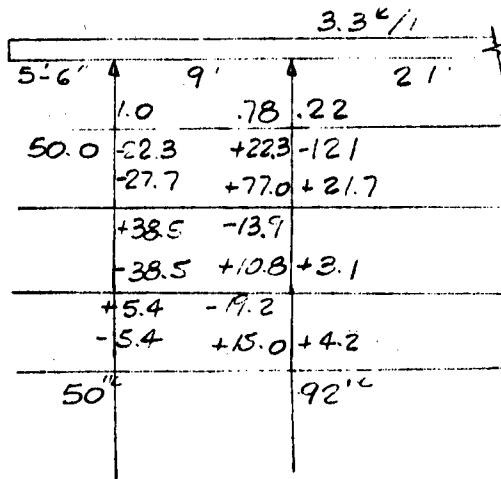 3.3 k/1
5'-6" 9' 21'
1.0 .78 .22
50.0 -22.3 +22.3 -121
-27.7 +77.0 +21.7
+38.5 -13.9
-38.5 +10.8 +3.1
+5.4 -19.2
-5.4 +15.0 +4.2
50'k 92'k